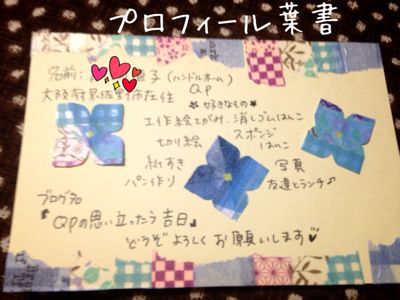 プロフィール葉書
名前: 子 (ハンドルホーム)
QP
大阪府泉佐野市在住
✿好きなもの✿
工作絵てがみ、消しゴムはんこ
切り絵 スポンジはんこ
紙すき 写真
パン作り 友達とランチ♪
ブログ名
『QPの思い立ったら吉日』
どうぞよろしくお願いします♡